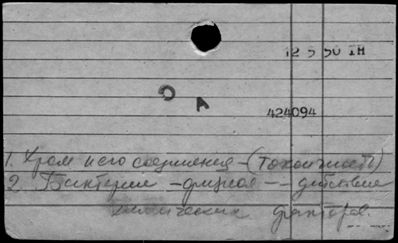 12 5 50 IM
О А
424094
1. Хром и его соединения - (токсичность)
2. Бактерии - физиол - - действие
химических факторов.